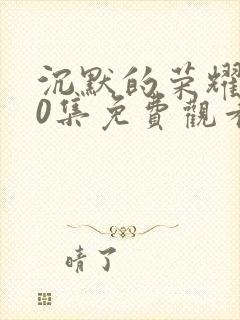 沉默的荣耀
0集免費觀看
晴了